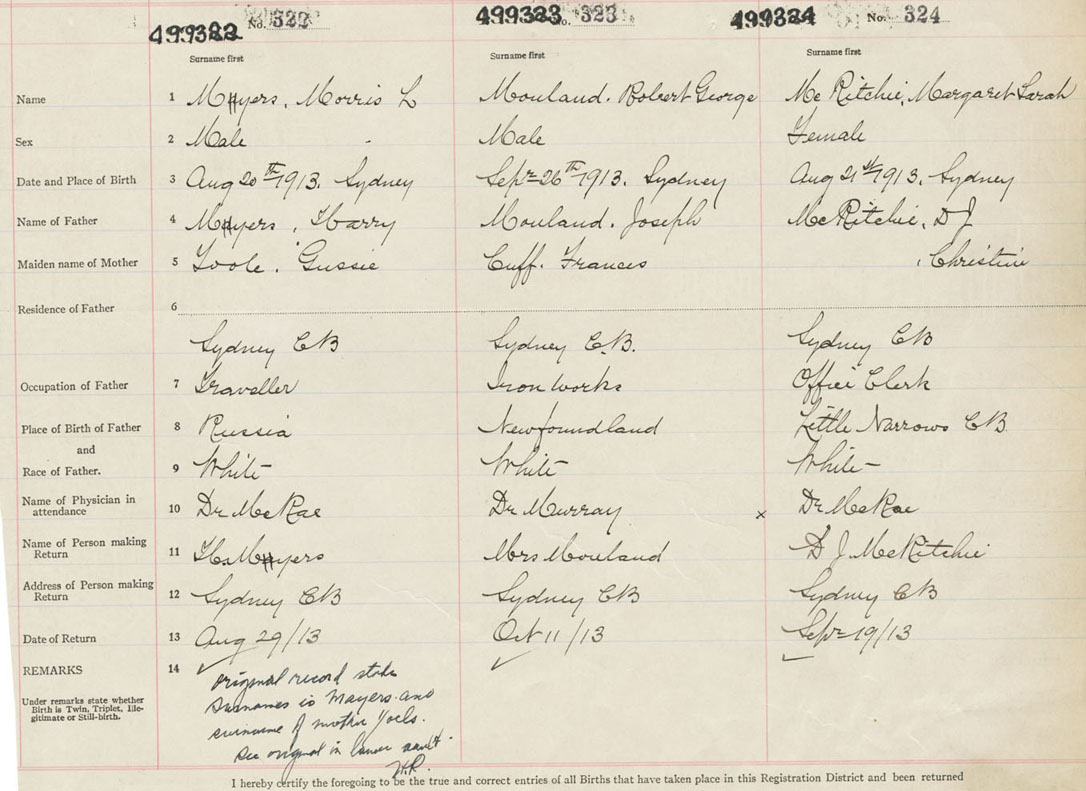 No. 323 No. 324
499322 499323 499324
Surname first Surname first Surname first
Name 1 Mayers, Morris L Mouland. Robert George McRitchie, Margaret Sarah
Sex 2 Male Male Female
Date and Place of Birth 3 Aug 20th 1913. Sydney Sepr 26th 1913. Sydney Aug 21st 1913. Sydney
Name of Father 4 Mayers, Harry Mouland. Joseph McRitchie, D J
Maiden name of Mother 5 Gussie Cuff. Frances , Christine
Residence of Father 6
Sydney CB Sydney C.B. Sydney CB
Occupation of Father 7 Traveller Iron works Office Clerk
Place of Birth of Father 8 Russia Newfoundland Little Narrows CB
and
Race of Father. 9 White White White
Name of Physician in
attendance 10 Dr McRae Dr Murray x Dr McRae
Name of Person making
Return 11 H. Mayers Mrs Mouland D J McRitchie
Address of Person making
Return 12 Sydney CB Sydney CB Sydney CB
Date of Return 13 Aug 29/13 Oct 11/13 Sepr 19/13
REMARKS 14 original record state
Under remarks state whether
Birth is Twin, Triplet, Ille-
gitimate or Still-birth.
Surnames is Mayers and
surname of mother Joels.
See original in lower vault.
H.R.
I hereby certify the foregoing to be the true and correct entries of all Births that have taken place in this Registration District and been returned